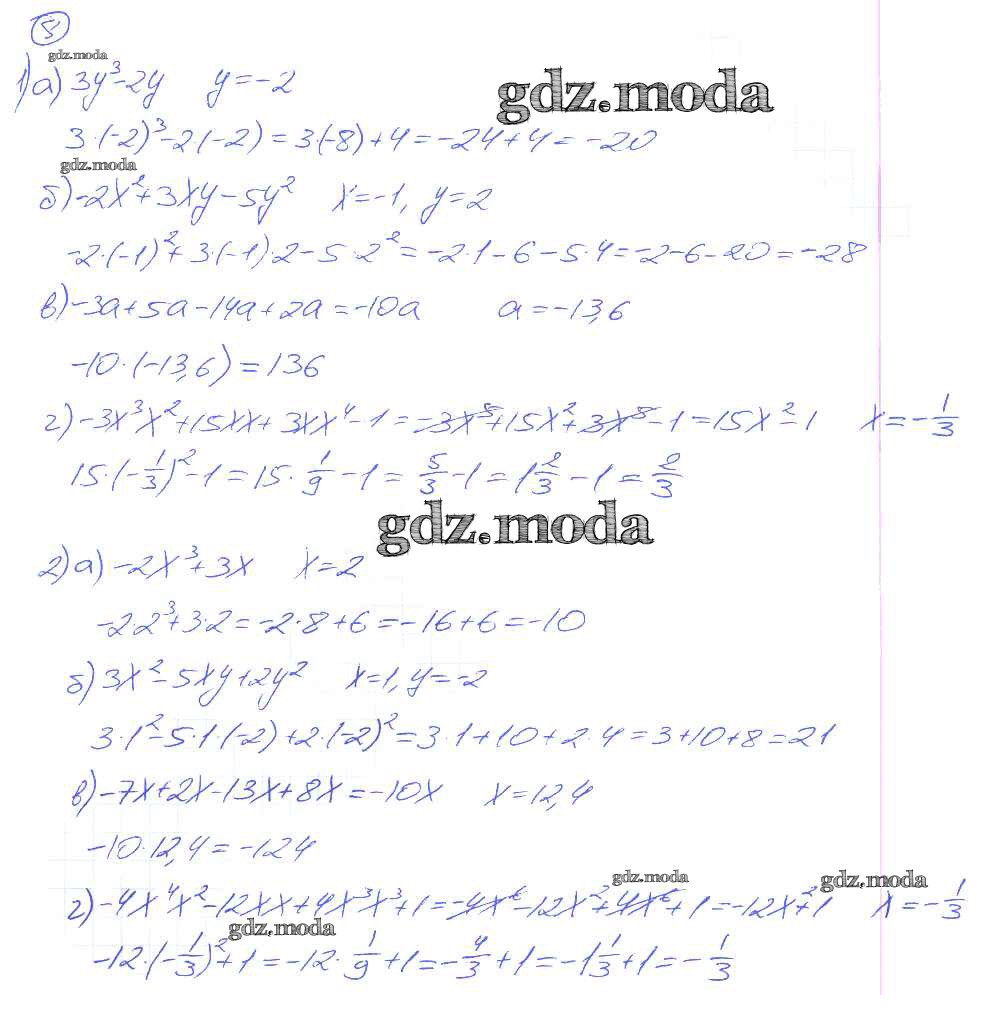 8
gdz.moda
1) а) 3y³-2y y=-2
gdz.moda
3·(-2)³-2(-2)=3(-8)+4=-24+4=-20
gdz.moda
б) -2x²+3xy-5y² x=-1, y=2
-2·(-1)²+3·(-1)·2-5·2²=-2·1-6-5·4=-2-6-20=-28
в) -3a+5a-14a+2a=-10a a=-13,6
-10·(-13,6)=136
г) -3x³x²+15xx+3xx⁴-1=-3x⁵+15x²+3x⁵-1=15x²-1 x=-1/3
15·(-1/3)²-1=15·1/9-1=5/3-1=1 2/3-1=2/3
gdz.moda
2) а) -2x³+3x x=2
-2·2³+3·2=-2·8+6=-16+6=-10
б) 3x²-5xy+2y² x=1, y=-2
3·1²-5·1·(-2)+2·(-2)²=3·1+10+2·4=3+10+8=21
в) -7x+2x-13x+8x=-10x x=12,4
-10·12,4=-124
gdz.moda
gdz.moda
г) -4x⁴x²-12xx+4x³x³+1=-4x⁶-12x²+4x⁶+1=-12x²+1 x=-1/3
gdz.moda
-12·(-1/3)²+1=-12·1/9+1=-4/3+1=-1 1/3+1=-1/3